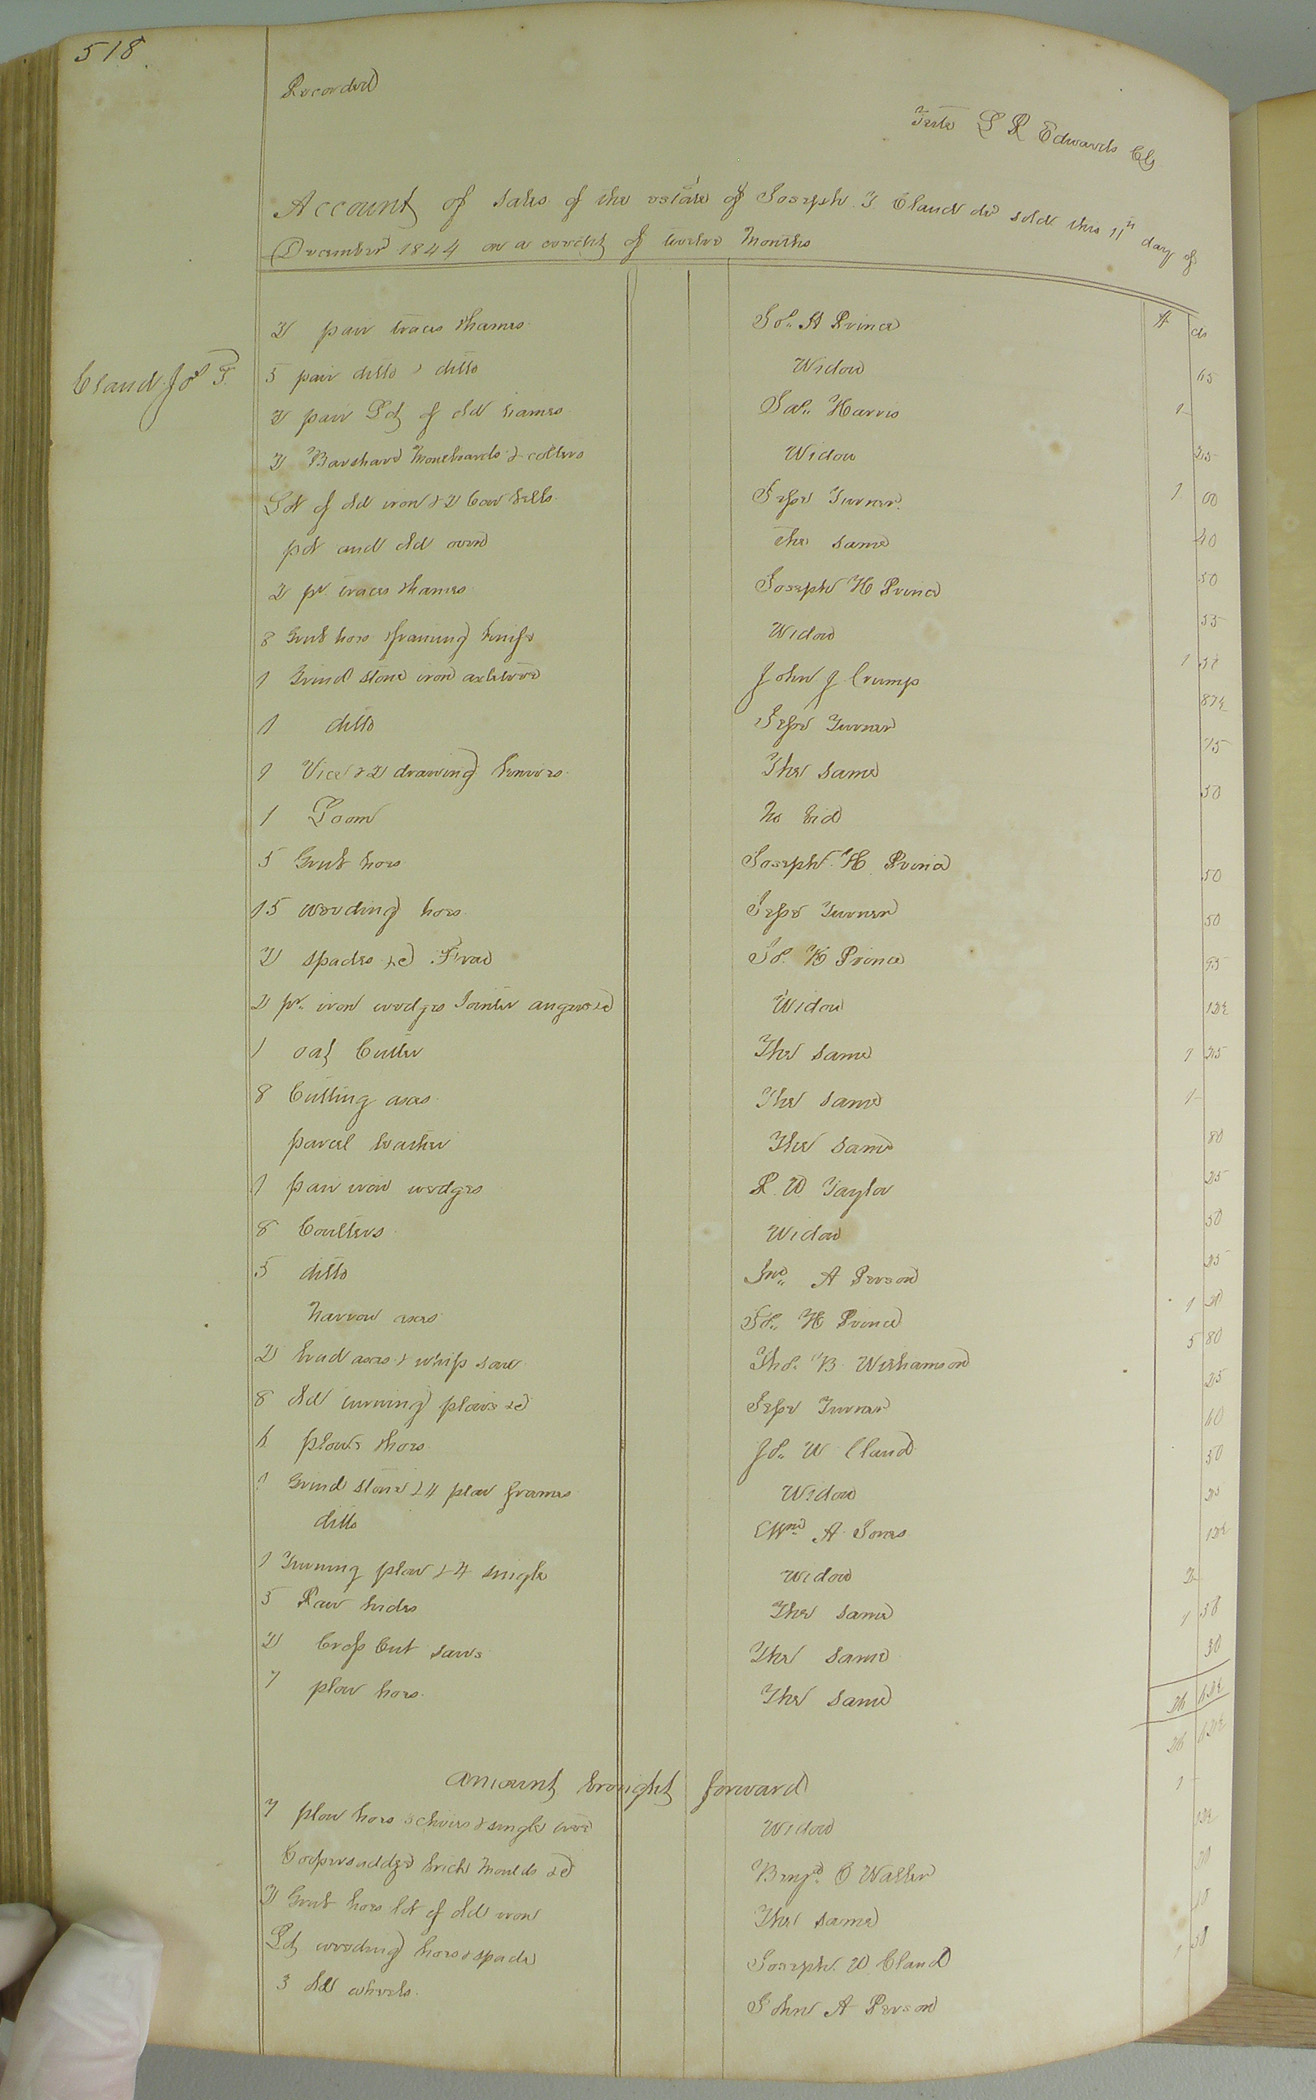 518
Recorded
Teste L R Edwards Clk
Account of Sales of the estate of Joseph T Claud decd sold this 11th day of
December 1844 on a credit of twelve Months
Claud Jos T.
$ cts
2 pair traces & hames Jos. H Prince 65
5 pair ditto & ditto Widow 1
2 pair Lot of old hames Sal. Harris 25
2 Barshare & collers Widow 1 00
Lot of old iron & 2 Cow bells Jesse Turner 40
pot and old oven the same 50
2 pr traces & hames Joseph H Prince 55
8 Grub hoes & knife Widow 1
1 Grind stone iron axletree John J Crump 87½
1 ditto Jesse Turner 75
1 Vice & 2 drawing knives The same 50
1 Loom No bid
5 Grub hoes Joseph H Prince 50
15 weeding hoes Jesse Turner 50
2 spades &c Jos. H Prince
2 pr. iron wedges Jointer augurs &c Widow 12½
1 oat Cutter The same 1 25
8 Cutting axes The same 1
parcel leather The same 80
1 pair iron wedges R. W. Taylor 25
8 Coulters Widow 50
5 ditto Jno. A Person 25
Narrow axes Jos. H Prince 1 20
2 broad axes & whip saw Thos. B Williamson 5 80
8 old turning plows &c Jesse Turner 25
6 plows & hoes Jos. W Claud 60
1 Grind stone & 4 plow frames Widow 50
ditto Wm A Jones 25
1 Turning plow & 4 single Widow 12½
5 Raw hides The same 2
2 Cross Cut saws The same 1 50
7 plow hoes The same 50
26 62½
amount brought forward 26 62½
7 plow hoes clevises & single tree Widow 1
Coopers adze brick moulds &c Benja. C Waller 12½
2 Grub hoes lot of old iron The same 20
Lot weeding hoes & spade Joseph W. Claud 10
3 old wheels John A Person 1 50